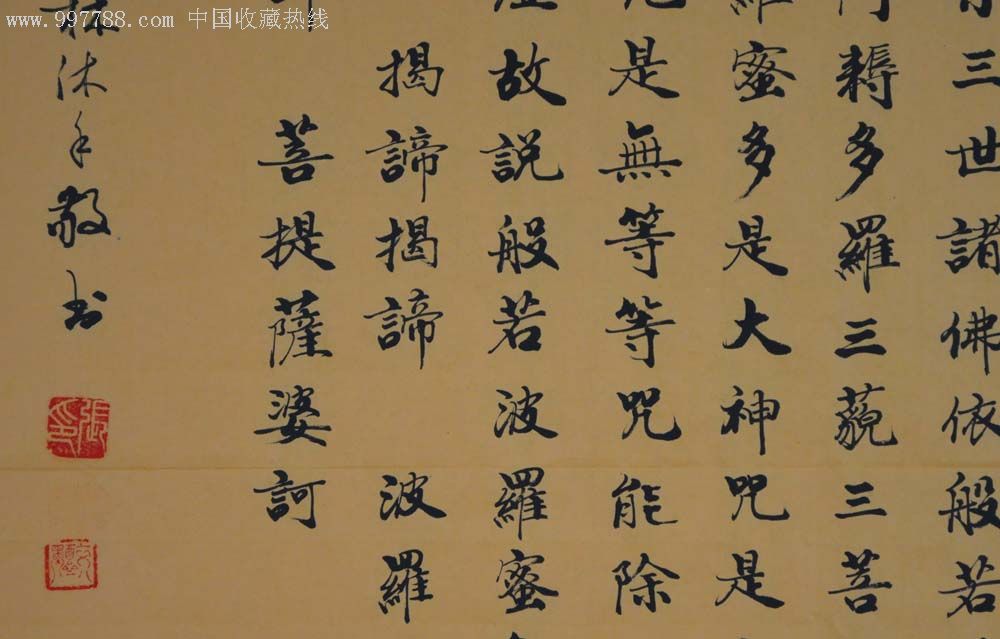 www.997788.com 中国收藏热线
三世諸佛依般若
耨多羅三藐三菩
蜜多是大神咒是
是無等等咒能除
故説般若波羅蜜
揭諦揭諦 波羅
菩提薩婆訶
沐手敬书
張印